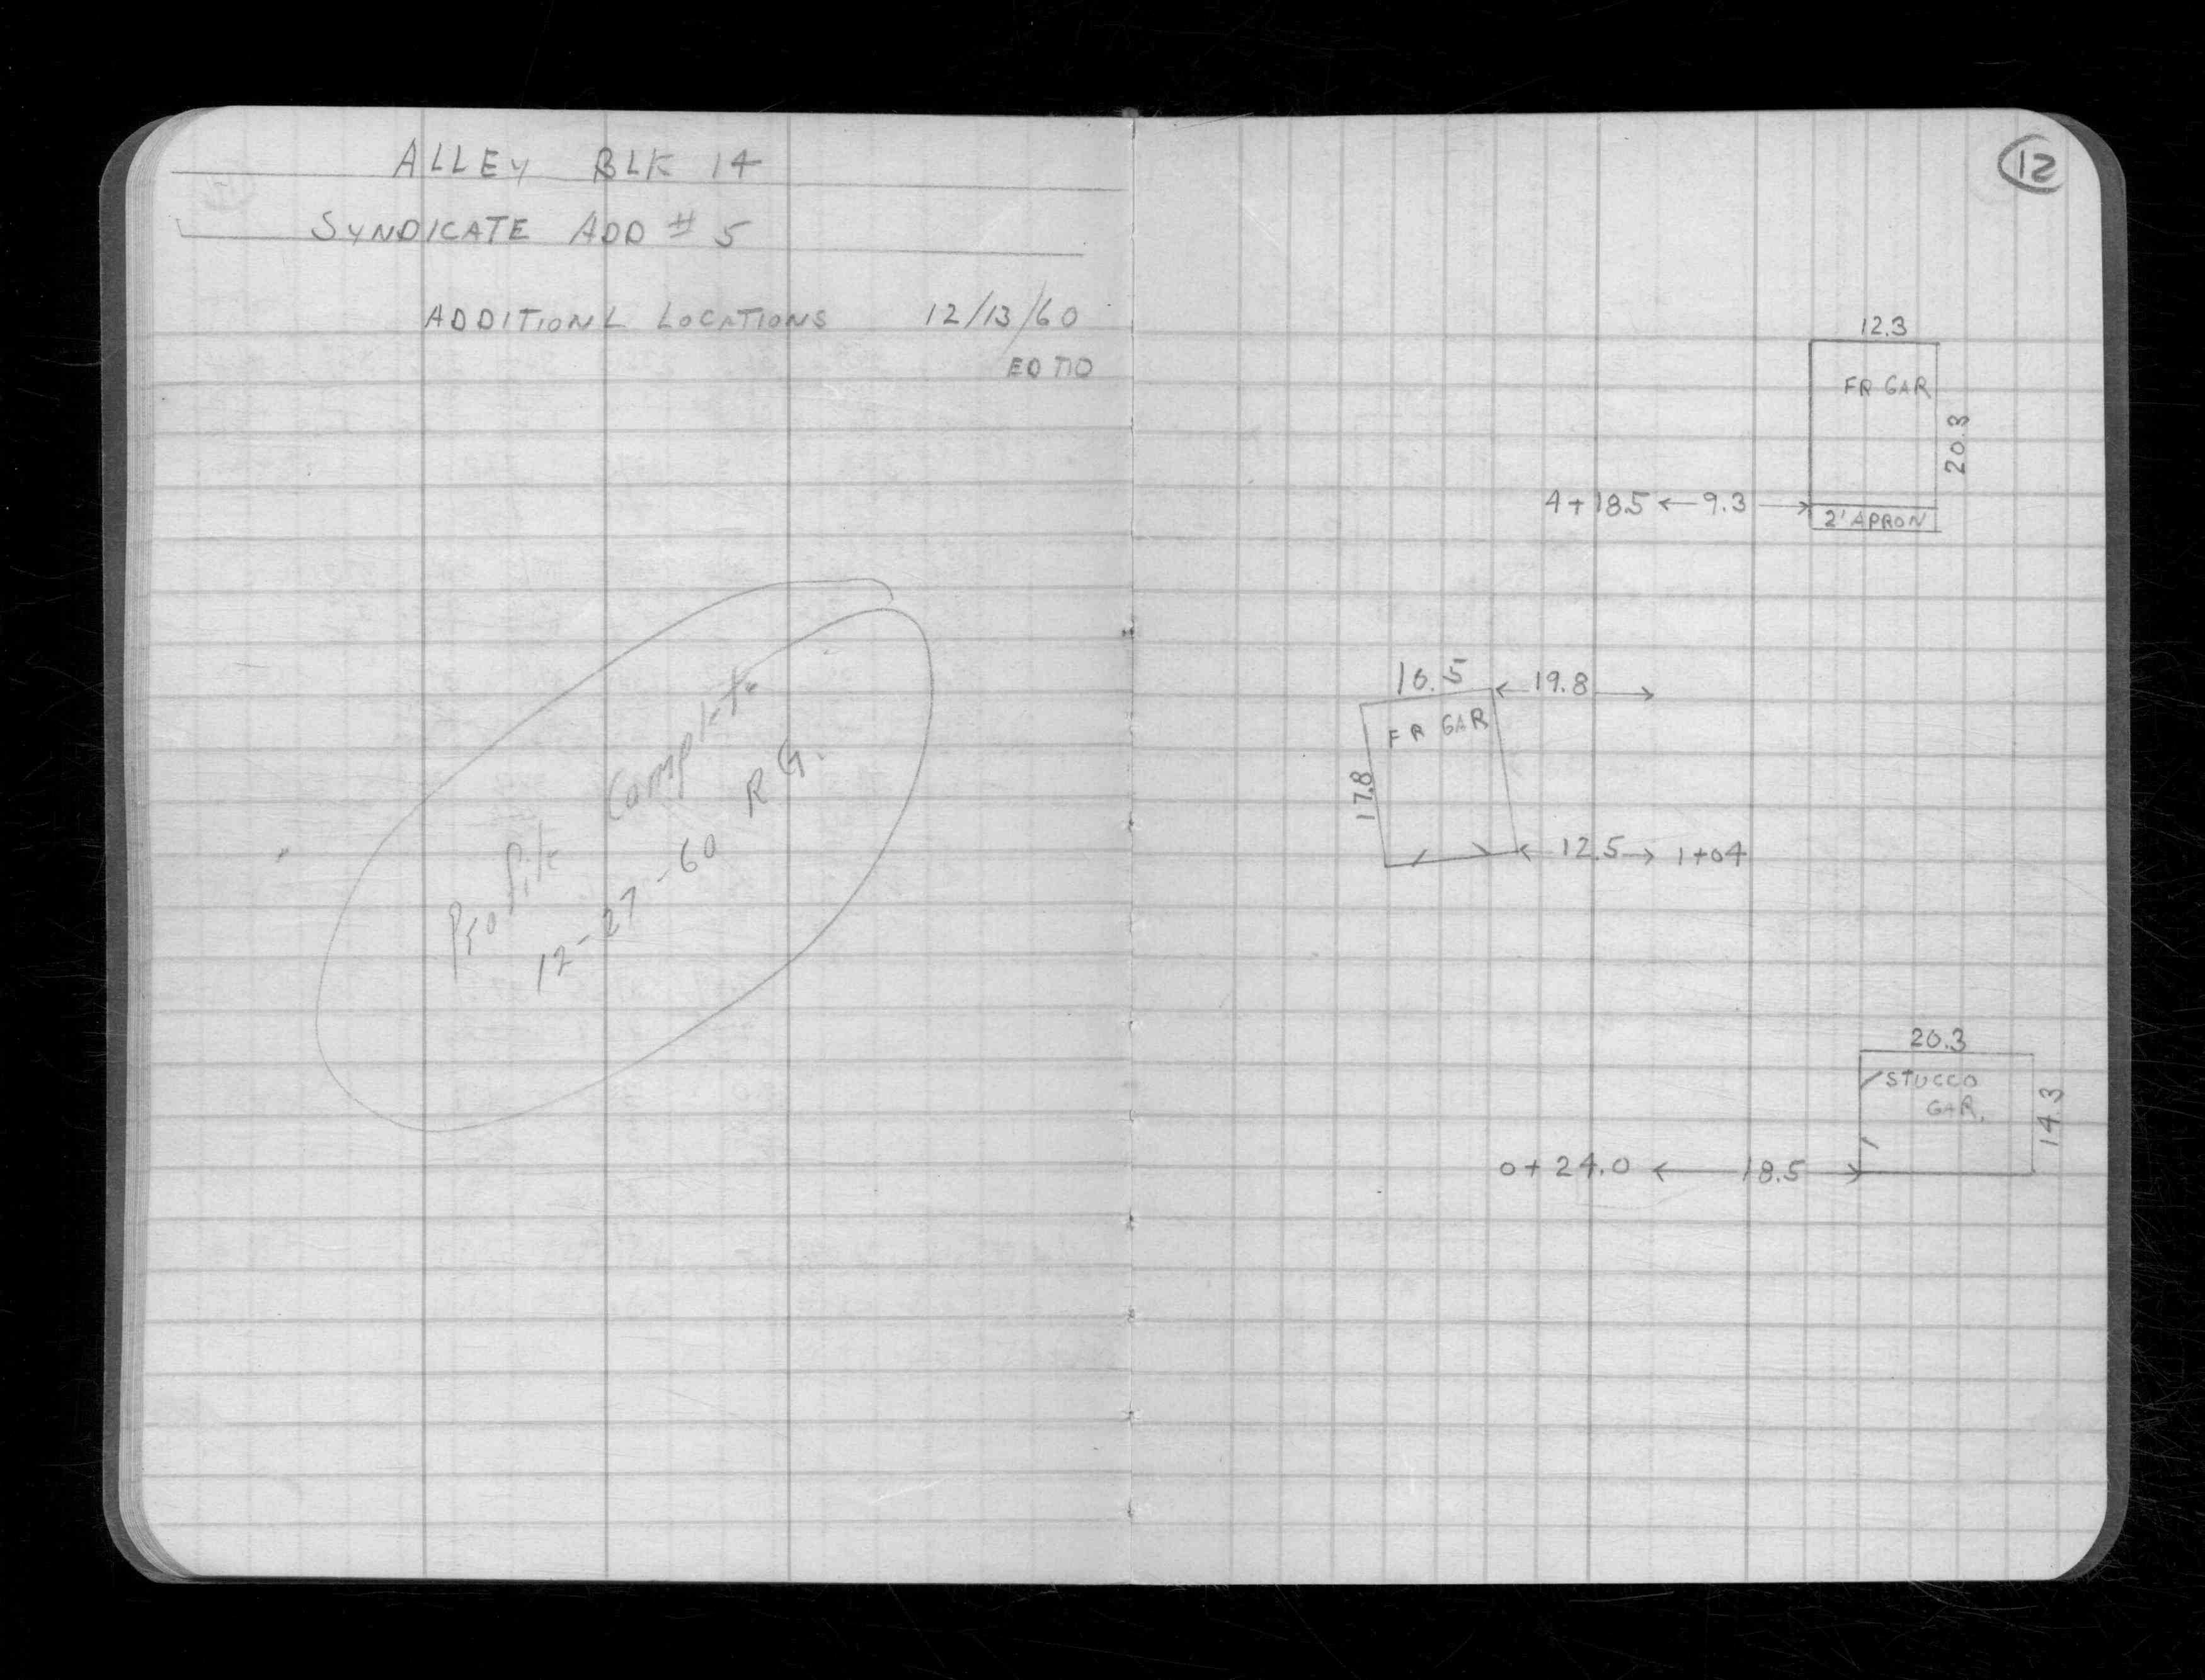 ALLEY BLK 14
SYNDICATE ADD # 5
ADDITIONL LOCATIONS 12/13/60
Profile Complete
12-27-60 RG.
12
12.3
FR GAR
20.3
4+18.5 ← 9.3 →
2' APRON
16.5 ← 19.8 →
FR GAR
17.8
← 12.5 → 1+04
20.3
STUCCO
GAR.
14.3
0+24.0 ← 18.5 →